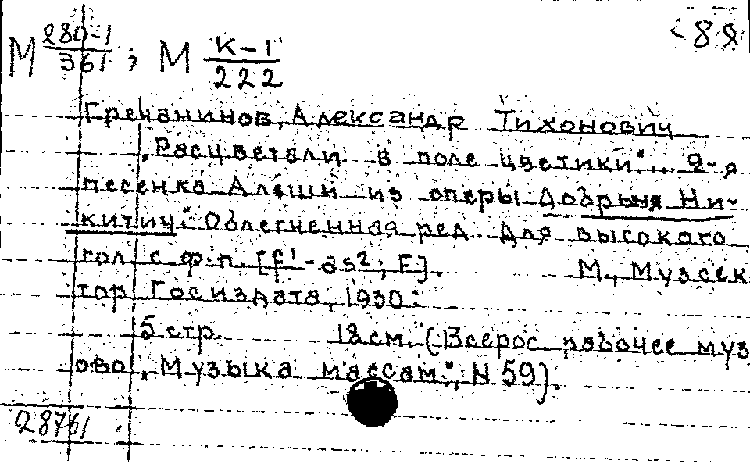 М 280-1/361 ; М К-1/222
Гречанинов, Александр Тихонович
„Расцветали в поле цветики"... 2-я
песенка Алеши из оперы Добрыня Ни-
китич." Облегченная ред. для высокого
гол с ф-п. [f¹-as²; F]. М., Музсек
тор Госиздата, 1930.
5 стр. 18 см. (Всерос рабочее муз
о-во „Музыка массам", N 59).
28761